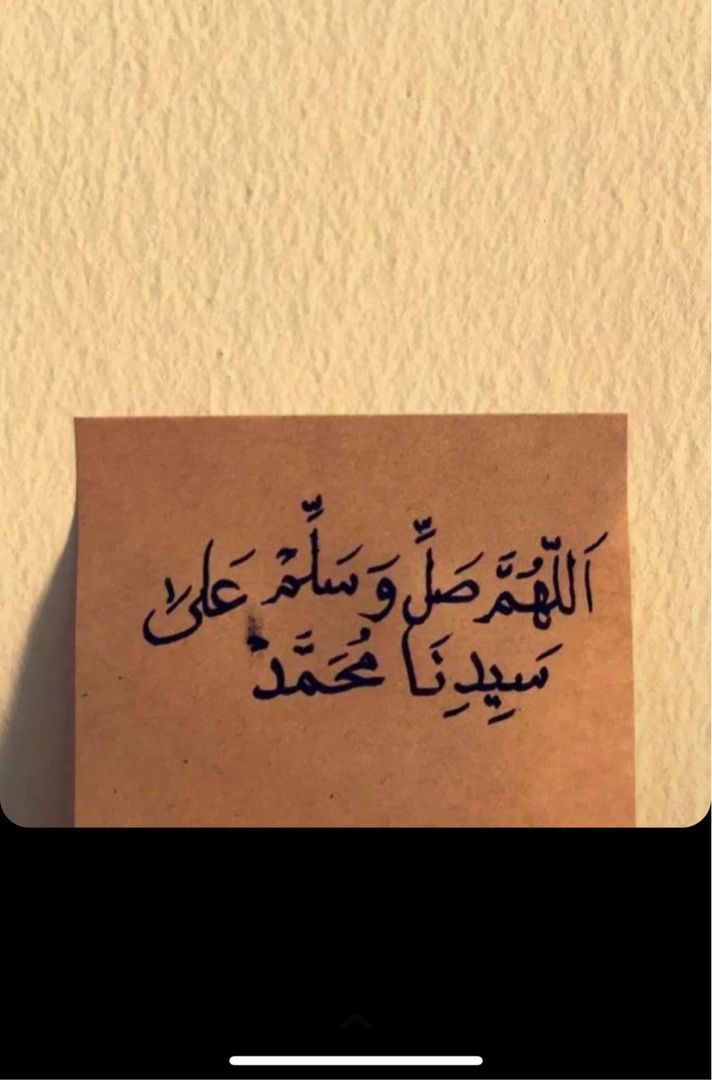 اَللّٰهُمَّ صَلِّ وَسَلِّمْ عَلىٰ
سَيِدِنَا مُحَمَّدْ